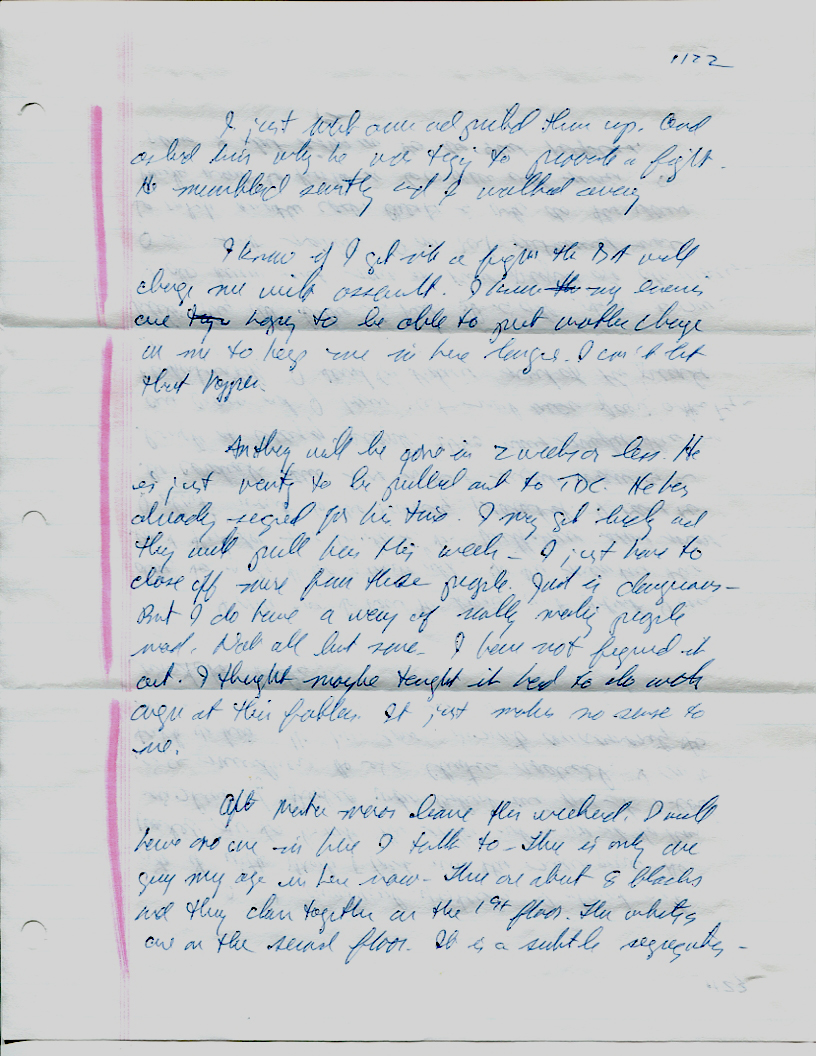 1122
I just went over and picked them up. And
asked him why he was trying to provoke a fight.
He mumbled something and I walked away
I know if I get into a fight the DA will
charge me with assault. I know my enemies
are hoping to be able to put another charge
on me to keep me in here longer. I can't let
that happen.
Anthony will be gone in 2 weeks or less. He
is just waiting to be pulled out to TDC. He has
already signed for his time. I may get lucky and
they will pull him this week - I just have to
close off more from these people. Just is dangerous -
But I do have a way of really making people
mad. Not all but some. I have not figured it
out. I thought maybe it had to do with
anger at their fathers. It just makes no sense to
me.
After leave this weekend. I will
have no one in here I talk to - There is only one
guy my age in here now - There are about 8 blacks
and they together on the 1st floor. The whites
are on the second floor. It is a subtle segregation -